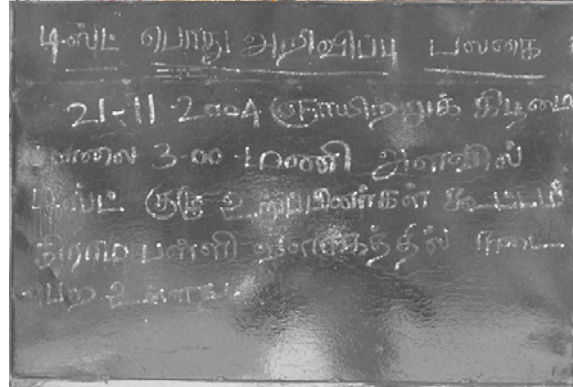 டிஸ்ட் பொது அறிவிப்பு பலகை
21-11-2004 ஞாயிற்றுக் கிழமை
மாலை 3-00 மணி அளவில்
டிஸ்ட் குழு உறுப்பினர்கள் கூட்டம்
கிராமபள்ளி வளாகத்தில் நடை
பெற உள்ளது.